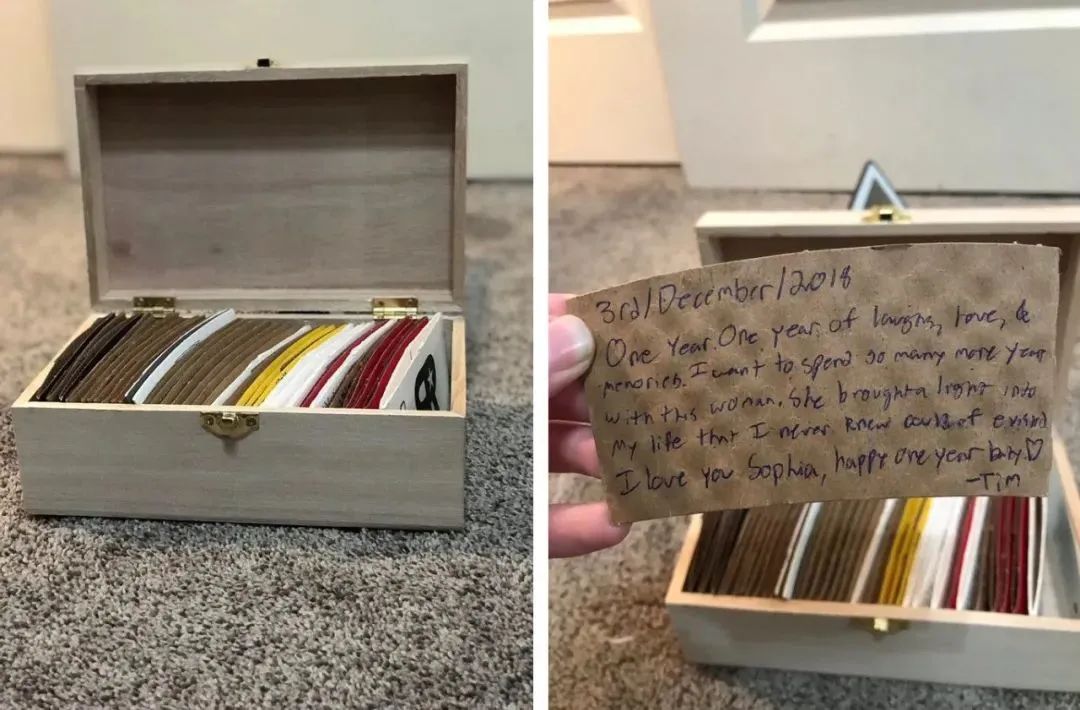 3rd/December/2018
One Year. One year of laughs, love, &
memories. I want to spend so many more year
with this woman. She brought a light into
my life that I never knew could of existed
I love you Sophia, happy one year baby ♡
-Tim